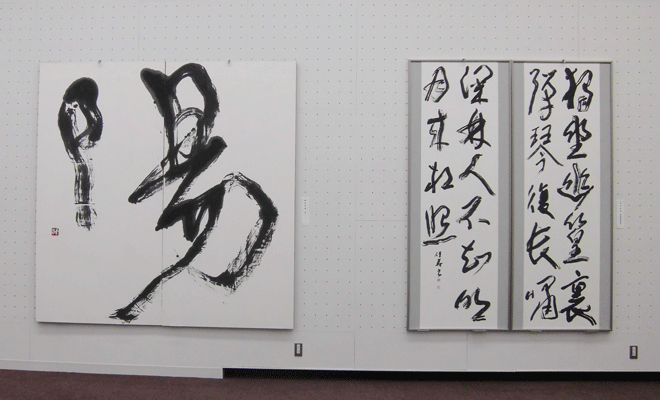 陽
獨坐幽篁裏
彈琴復長嘯
深林人不知明
月來相照